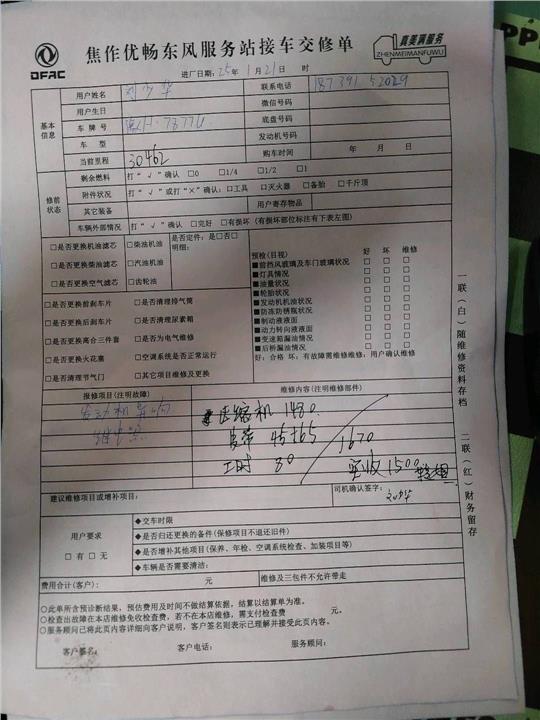 DFAC
焦作优畅东风服务站接车交修单
真美满服务
ZHENMEIMANFUWU
进厂日期：25年1月21日 时
基本信息
用户姓名 联系电话
用户生日 微信号码
车牌号 底盘号码
车型 发动机号码
当前里程 30462 购车时间 年 月 日
修前状态
剩余燃料 打“√”确认 □0 □1/4 □1/2 □1
附件状况 打“√”或打“×”确认：□工具 □灭火器 □备胎 □千斤顶
其它装备 用户寄存物品
车辆外部情况 打“√”确认 □完好 □有损坏（有损坏部位标注有下表左图）
□是否更换机油滤芯 □柴油机油 是否定件：是□否□
明细：
□是否更换柴油滤芯 □汽油机油
□是否更换空气滤芯 □齿轮油
□是否更换前刹车片 □是否清理排气筒
□是否更换后刹车片 □是否清理尿素箱
□是否更换离合三件套 □是否为电气维修
□是否更换火花塞 □空调系统是否正常运行
□是否清理节气门 □其它项目维修及更换
预检（目视） 好 坏 维修
■前挡风玻璃及车门玻璃状况 □ □ □
■灯具情况 □ □ □
■油量状况 □ □ □
■轮胎状况 □ □ □
■发动机机油状况 □ □ □
■防冻防锈瓶状况 □ □ □
■制动液液面 □ □ □
■动力转向液液面 □ □ □
■变速箱漏油情况 □ □ □
■后桥漏油情况 □ □ □
好：合格 坏：有故障需维修维修：用户确认维修
报修项目（注明故障） 维修内容（注明维修部件）
发动机异响 压缩机 1480.
皮带 1670
工时 实收1500
建议维修项目或增补项目： 司机确认签字：
用户要求
□有 □无
◆交车时限
◆是否归还更换的备件（保修项目不退还旧件）
◆是否增补其他项目（保养、年检、空调系统检查、加装项目等）
◆车辆是否需要清洁：
费用合计（客户）： 元 维修及三包件不允许带走
○此单所含预诊断结果，预估费用及时间不做结算依据，结算以结算单为准。
○检查出故障在本店维修免收检查费，若不在本店维修，需支付检查费 元。
○服务顾问已将此页内容详细向客户说明，客户签名则表示已理解并接受此页内容。
客户签名： 客户电话： 服务顾问：
一联（白）随维修资料存档
二联（红）财务留存